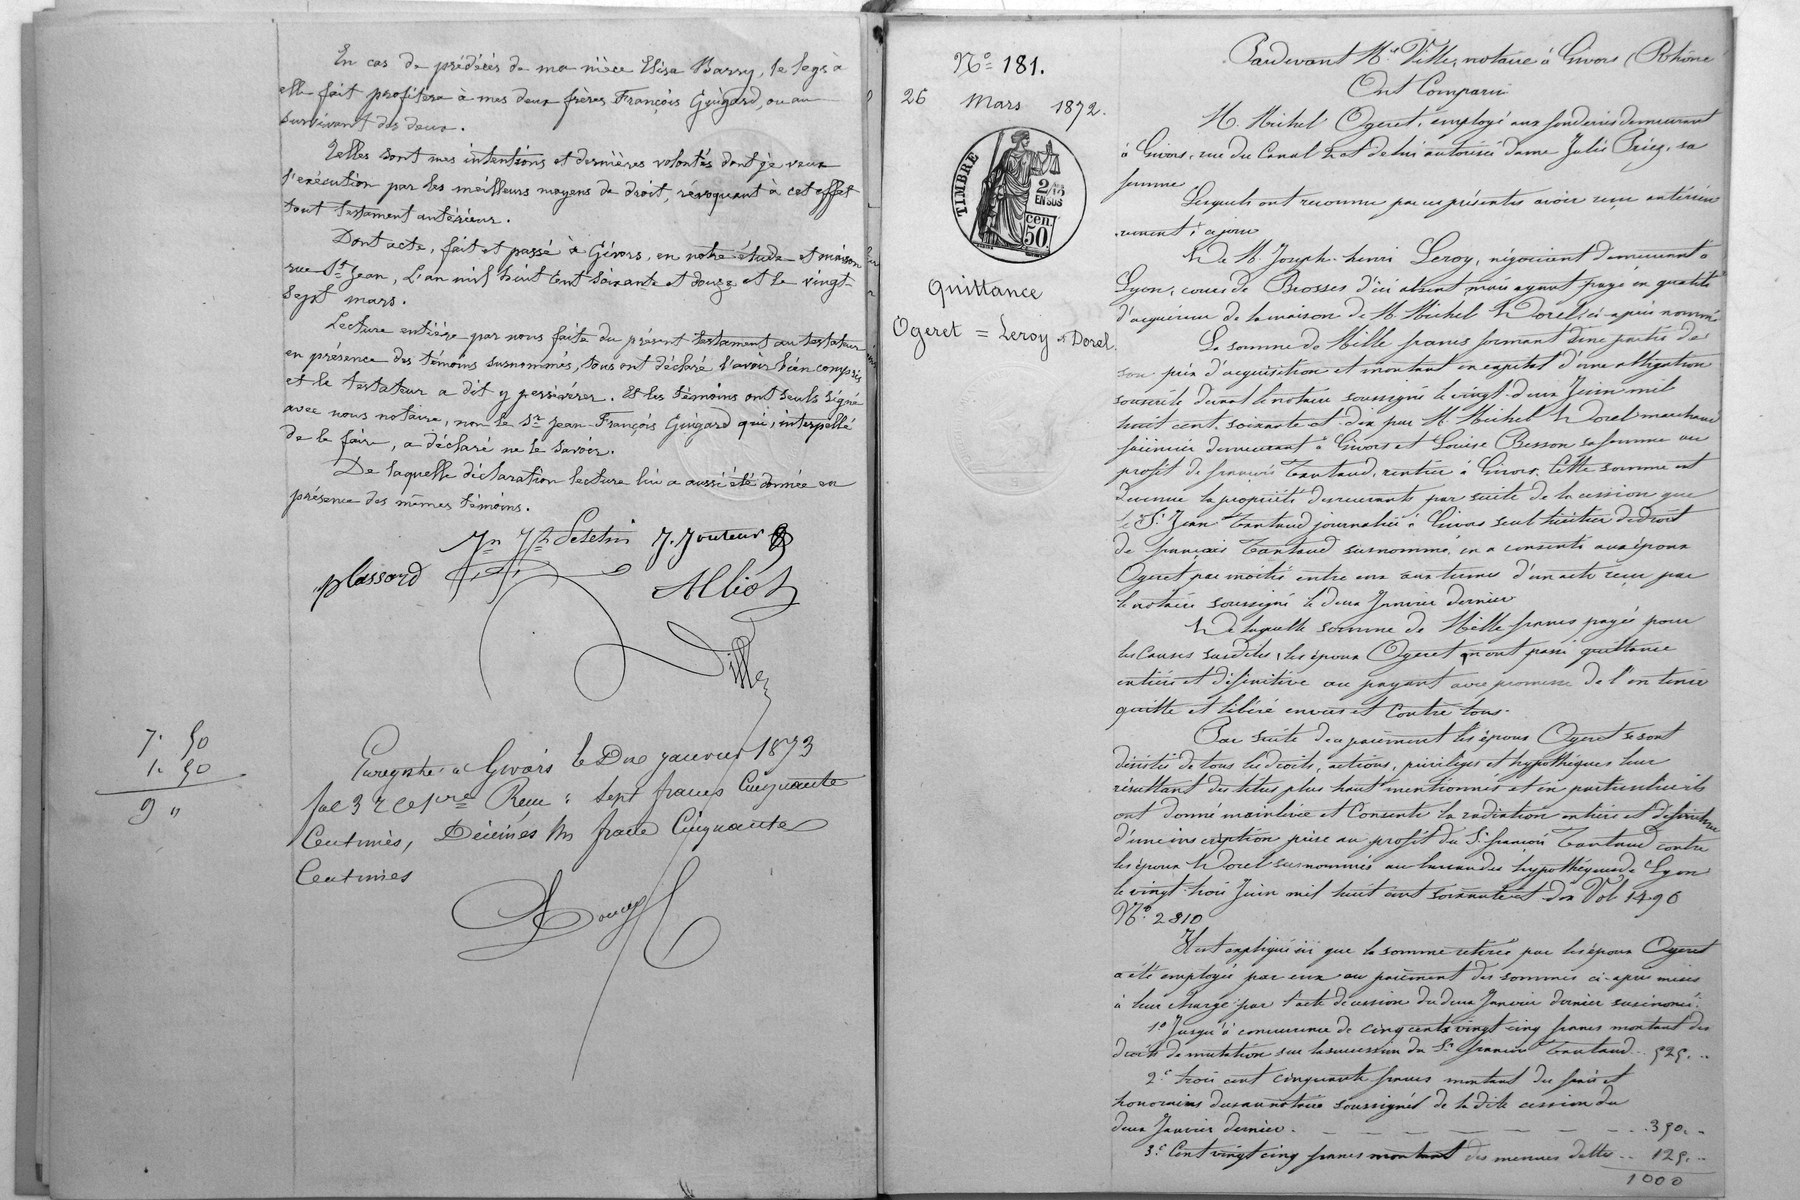 En cas de prédécès de ma nièce Elisa Barry, le legs à
elle fait profitera à mes deux frères François Guigard, ou au
survivant des deux.
Telles sont mes intentions et dernières volontés dont je veux
l'exécution par les meilleurs moyens de droit, révoquant à cet effet
tout testament antérieur.
Dont acte, fait et passé à Givors, en notre étude et maison
rue St Jean, L'an mil huit cent soixante et douze et le vingt-
sept mars.
Lecture entière par nous faite du présent testament au testateur
en présence des témoins susnommés, tous ont déclaré l'avoir bien compris
et le testateur a dit y persévérer. Et les témoins ont seuls signé
avec nous notaire, non le Sr Jean-François Guigard qui, interpellé
de le faire, a déclaré ne le savoir.
De laquelle déclaration lecture lui a aussi été donnée en
présence des mêmes témoins.
plassard
Alliot
Ville
7. 50
1. 50
9 "
Enregistré à Givors le Dix janvier 1873
fol 3 r Reçu : sept francs Cinquante
Centimes, Décimes Un franc Cinquante
Centimes
No 181.
26 Mars 1872.
TIMBRE
2/10
EN SUS
50 cen.
Quittance
Ogeret = Leroy et Dorel.
Pardevant Me Ville, notaire à Givors (Rhône)
Ont Comparu
M. Michel Ogeret, employé aux fonderies demeurant
à Givors, rue du Canal et de lui autorisée dame Julie Priez, sa
femme
Lesquels ont reconnu par ces présentes avoir reçu antérieu
rement à ce jour
De M. Joseph-henri Leroy, négociant demeurant à
Lyon, cours de Brosses d'ici absent, mais ayant payé en qualité
d'acquéreur de la maison de M. Michel Dorel, ci-après nommé
La somme de Mille francs formant d'une partie de
son prix d'acquisition et montant en capital d'une obligation
souscrite devant le notaire soussigné le vingt-deux Juin mil
huit cent soixante et dix par M. Michel Dorel marchand
demeurant à Givors et Louise Besson sa femme au
profit de françois Tantaud, rentier à Givors. Cette somme est
devenue la propriété des recevants par suite de la cession que
le Sr Jean Tantaud journalier à Givors seul héritier de droit
de françois Tantaud susnommé, en a consentie aux époux
Ogeret par moitié entre eux aux termes d'un acte reçu par
le notaire soussigné le deux Janvier dernier
De laquelle somme de Mille francs payée pour
les Causes susdites, les époux Ogeret ont passé quittance
entière et définitive au payant avec promesse de l'en tenir
quitte et libéré envers et Contre tous.
Par suite du paiement les époux Ogeret se sont
désistés de tous les droits, actions, privilèges et hypothèques leur
résultant des titres plus haut mentionnés et en particulier ils
ont donné mainlevée et Consenti la radiation entière et définitive
d'une inscription prise au profit du Sr françois Tantaud contre
les époux Dorel susnommés au bureau des hypothèques de Lyon
le vingt trois Juin mil huit cent soixante et dix Vol 1496
No 2810
Il est expliqué ici que la somme retirée par les époux Ogeret
a été employée par eux au paiement des sommes ci-après mises
à leur charge par l'acte de cession du deux Janvier dernier susénoncé:
1o Jusqu'à concurrence de cinq cent vingt cinq francs montant des
droits de mutation sur la succession du Sr françois Tantaud .. 525. ..
2o trois cent cinquante francs montant des frais et
honoraires dus au notaire soussigné de la dite cession du
deux Janvier dernier. — — — — — 350. ..
3o Cent vingt cinq francs montant des menues dettes .. 125. ..
1000